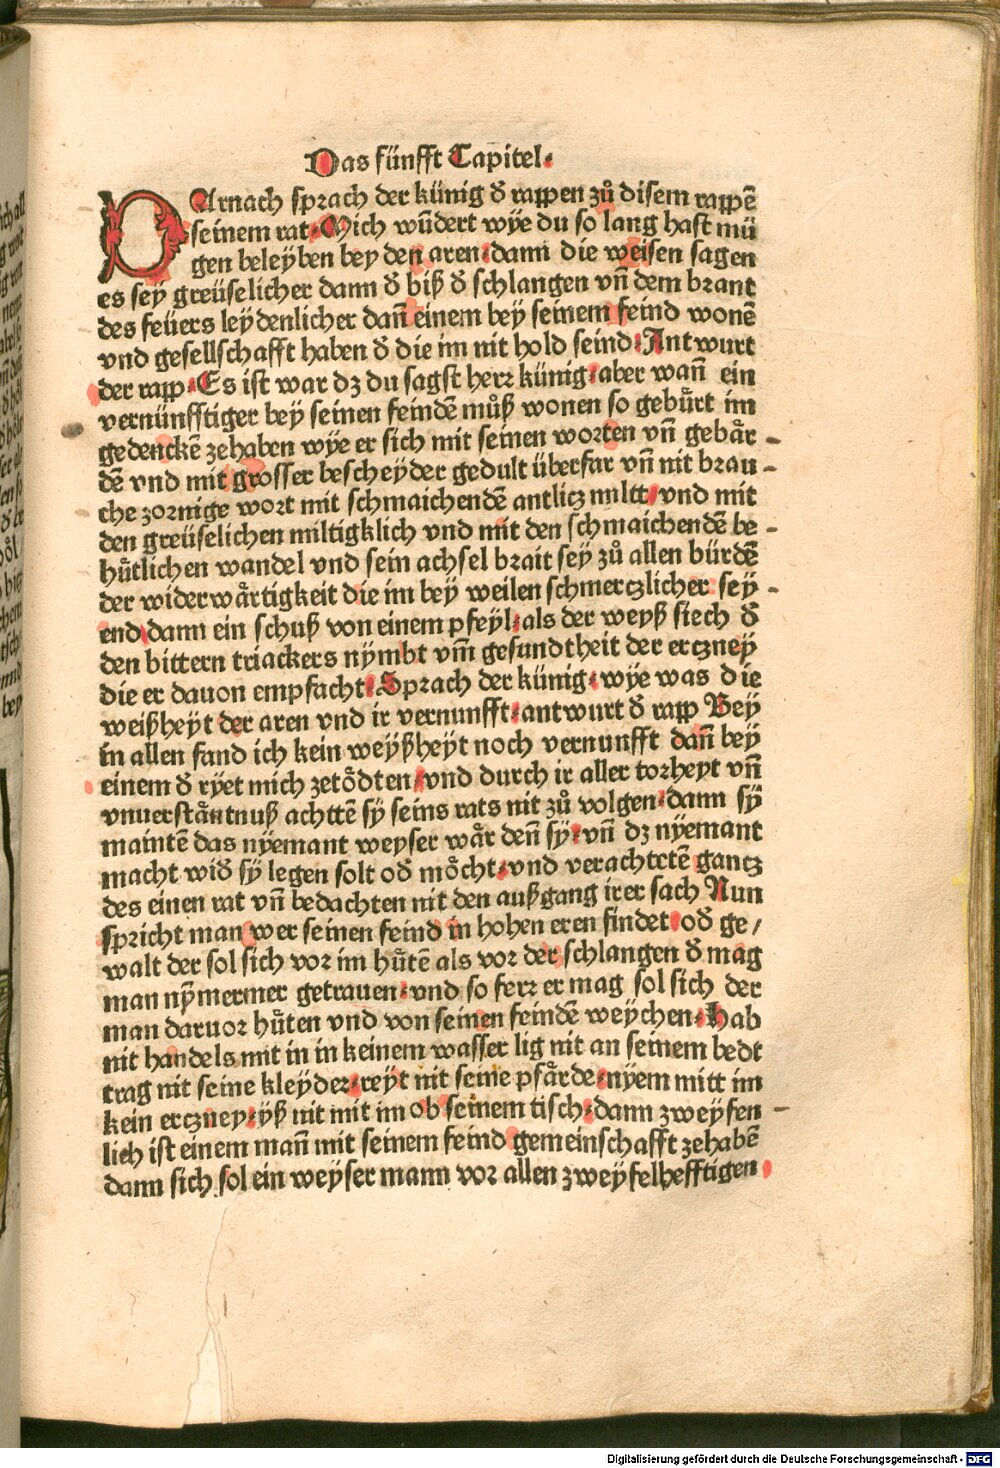 Das fünfft Capitel.
DArnach sprach der künig đ rappen zů disem rappē
seinem rat. Mich wūdert wÿe du so lang hast mü
gen beleÿben bey den aren. dann die weisen sagen
es seÿ greüselicher dann đ biß đ schlangen vñ dem brant
des feüers leÿdenlicher dañ einem beÿ seinem feind wonē
vnd gesellschafft haben đ die im nit hold seind. Antwurt
der rapp. Es ist war dz du sagst herr künig. aber wañ ein
vernünfftiger beÿ seinen feindē můß wonen so gebürt im
gedenckē zehaben wÿe er sich mit seinen worten vñ gebår
dē vnd mit grosser bescheÿder gedult überfar vñ nit brau
che zornige wort mit schmaichendē antlicz miltt. vnd mit
den greüselichen miltigklich vnd mit den schmaichendē be
hůtlichen wandel vnd sein achsel brait seÿ zů allen bürdē
der widerwårtigkeit die im beÿ weilen schmerczlicher seÿ
end dann ein schuß von einem pfeÿl. als der weyß siech đ
den bittern triackers nÿmbt vm̄ gesundtheit der erczneÿ
die er dauon empfacht. Sprach der künig. wÿe was die
weißheÿt der aren vnd ir vernunfft. antwurt đ rapp Beÿ
in allen fand ich kein weÿßheÿt noch vernunfft dañ beÿ
einem đ rÿet mich zetödten. vnd durch ir aller torheyt vñ
vnuerståntnuß achttē sÿ seins rats nit zů volgen. dann sÿ
maintē das nÿemant weyser wår deñ sÿ. vñ dz nÿemant
macht wiđ sÿ legen solt ođ möcht. vnd verachtetē gantz
des einen rat vñ bedachten nit den außgang irer sach Nun
spricht man wer seinen feind in hohen eren findet ođ ge/
walt der sol sich vor im hůtē als vor der schlangen đ mag
man nÿmermer getrauen. vnd so ferr er mag sol sich der
man daruor hůten vnd von seinen feindē weÿchen. Hab
nit handels mit in in keinem wasser lig nit an seinem bedt
trag nit seine kleÿder. reÿt nit seine pfårde. nÿem mitt im
kein erczney. ÿß nit mit im ob seinem tisch. dann zweÿfen
lich ist einem mañ mit seinem feind gemeinschafft zehabē
dann sich sol ein weÿser mann vor allen zweÿfelhefftigen
Digitalisierung gefördert durch die Deutsche Forschungsgemeinschaft - DFG